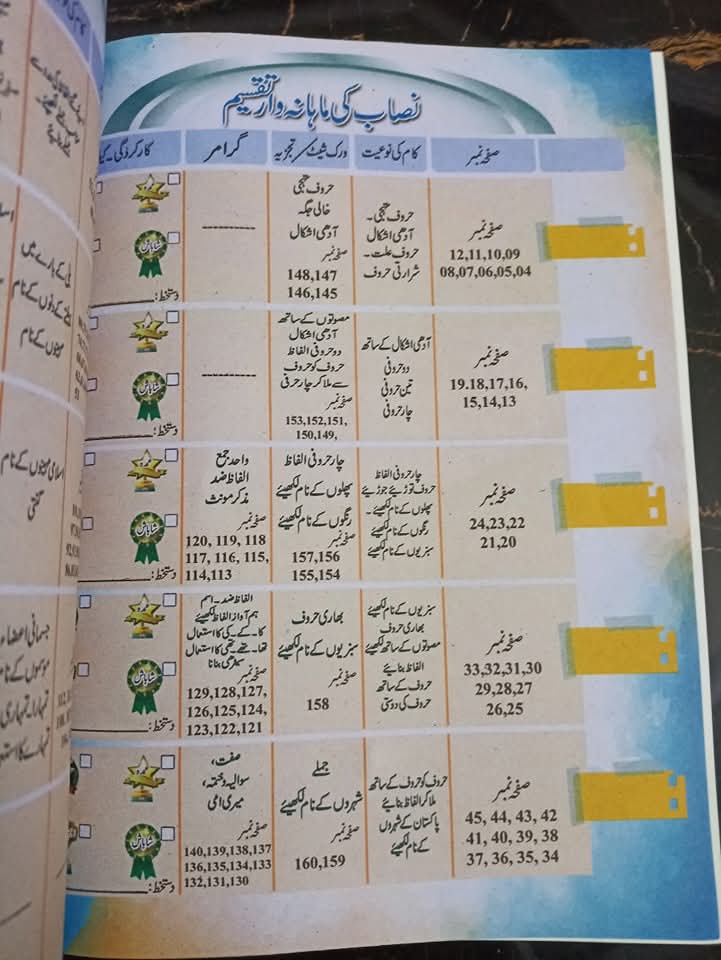 نصاب کی ماہانہ وار تقسیم
صفحہ نمبر
کام کی نوعیت
ورک شیٹ/تجزیہ
گرامر
کارکردگی۔
صفحہ نمبر
12,11,10,09
08,07,06,05,04
حروف تہجی۔
آدھی اشکال
حروف علت۔
شرارتی حروف
حروف تہجی
خالی جگہ
آدھی اشکال
صفحہ نمبر
148,147
146,145
---------
شاباش
دستخط:
صفحہ نمبر
19.18,17,16,
15,14,13
آدھی اشکال کے ساتھ
دو حرفی
تین حروفی
چار حروفی
مصوتوں کے ساتھ
آدھی اشکال
دو حروفی الفاظ
حروف کو حروف
سے ملا کر چار حرفی
صفحہ نمبر
153,152,151,
150,149,
---------
شاباش
دستخط:
صفحہ نمبر
24,23,22
21,20
چار حروفی الفاظ
حروف توڑیئے جوڑیئے
پھلوں کے نام لکھیئے۔
رنگوں کے نام لکھیئے
سبزیوں کے نام لکھیئے
چار حروفی الفاظ
پھلوں کے نام لکھیئے
رنگوں کے نام لکھیئے
صفحہ نمبر
157,156
155,154
واحد جمع
الفاظ ضد
مذکر مونث
صفحہ نمبر
120, 119, 118
117, 116, 115,
114,113
شاباش
دستخط:
صفحہ نمبر
33,32,31,30
29,28,27
26,25
سبزیوں کے نام لکھیئے
بھاری حروف
مصوتوں کے ساتھ لکھیئے
الفاظ بنائیے
حروف کے ساتھ
حروف کی دوستی
بھاری حروف
سبزیوں کے نام لکھیئے
صفحہ نمبر
158
الفاظ ضد۔ اسم
ہم آواز الفاظ لکھیئے
کا۔ کے۔ کی کا استعمال
تھا۔ تھے تھی کا استعمال
سیڑھی بنانا
صفحہ نمبر
129,128,127,
126,125,124,
123,122,121
شاباش
دستخط:
صفحہ نمبر
45, 44, 43, 42
41, 40, 39, 38
37, 36, 35, 34
حروف کو حروف کے ساتھ
ملا کر الفاظ بنائیے
پاکستان کے شہروں
کے نام لکھیئے
جملے
شہروں کے نام لکھیئے
صفحہ نمبر
160,159
صفت،
سوالیہ وختمہ،
میری امی
صفحہ نمبر
140,139,138,137
136,135,134,133
132,131,130
شاباش
دستخط:
کے بارے میں
کے دنوں کے نام
مہینوں کے نام
اسلامی مہینوں کے نام
گنتی
جسمانی اعضاء
موسموں کے نام
تمہارا۔ تمہاری
تمہارے کا استعمال